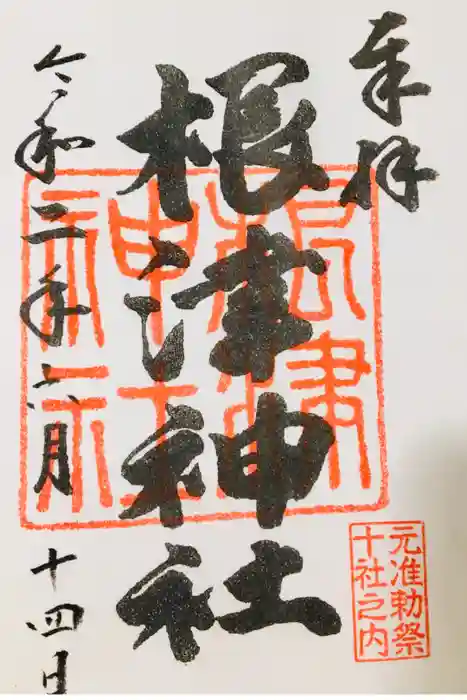 奉拝
根津神社
根津神社
元准勅祭
十社之内
令和二年六月十四日